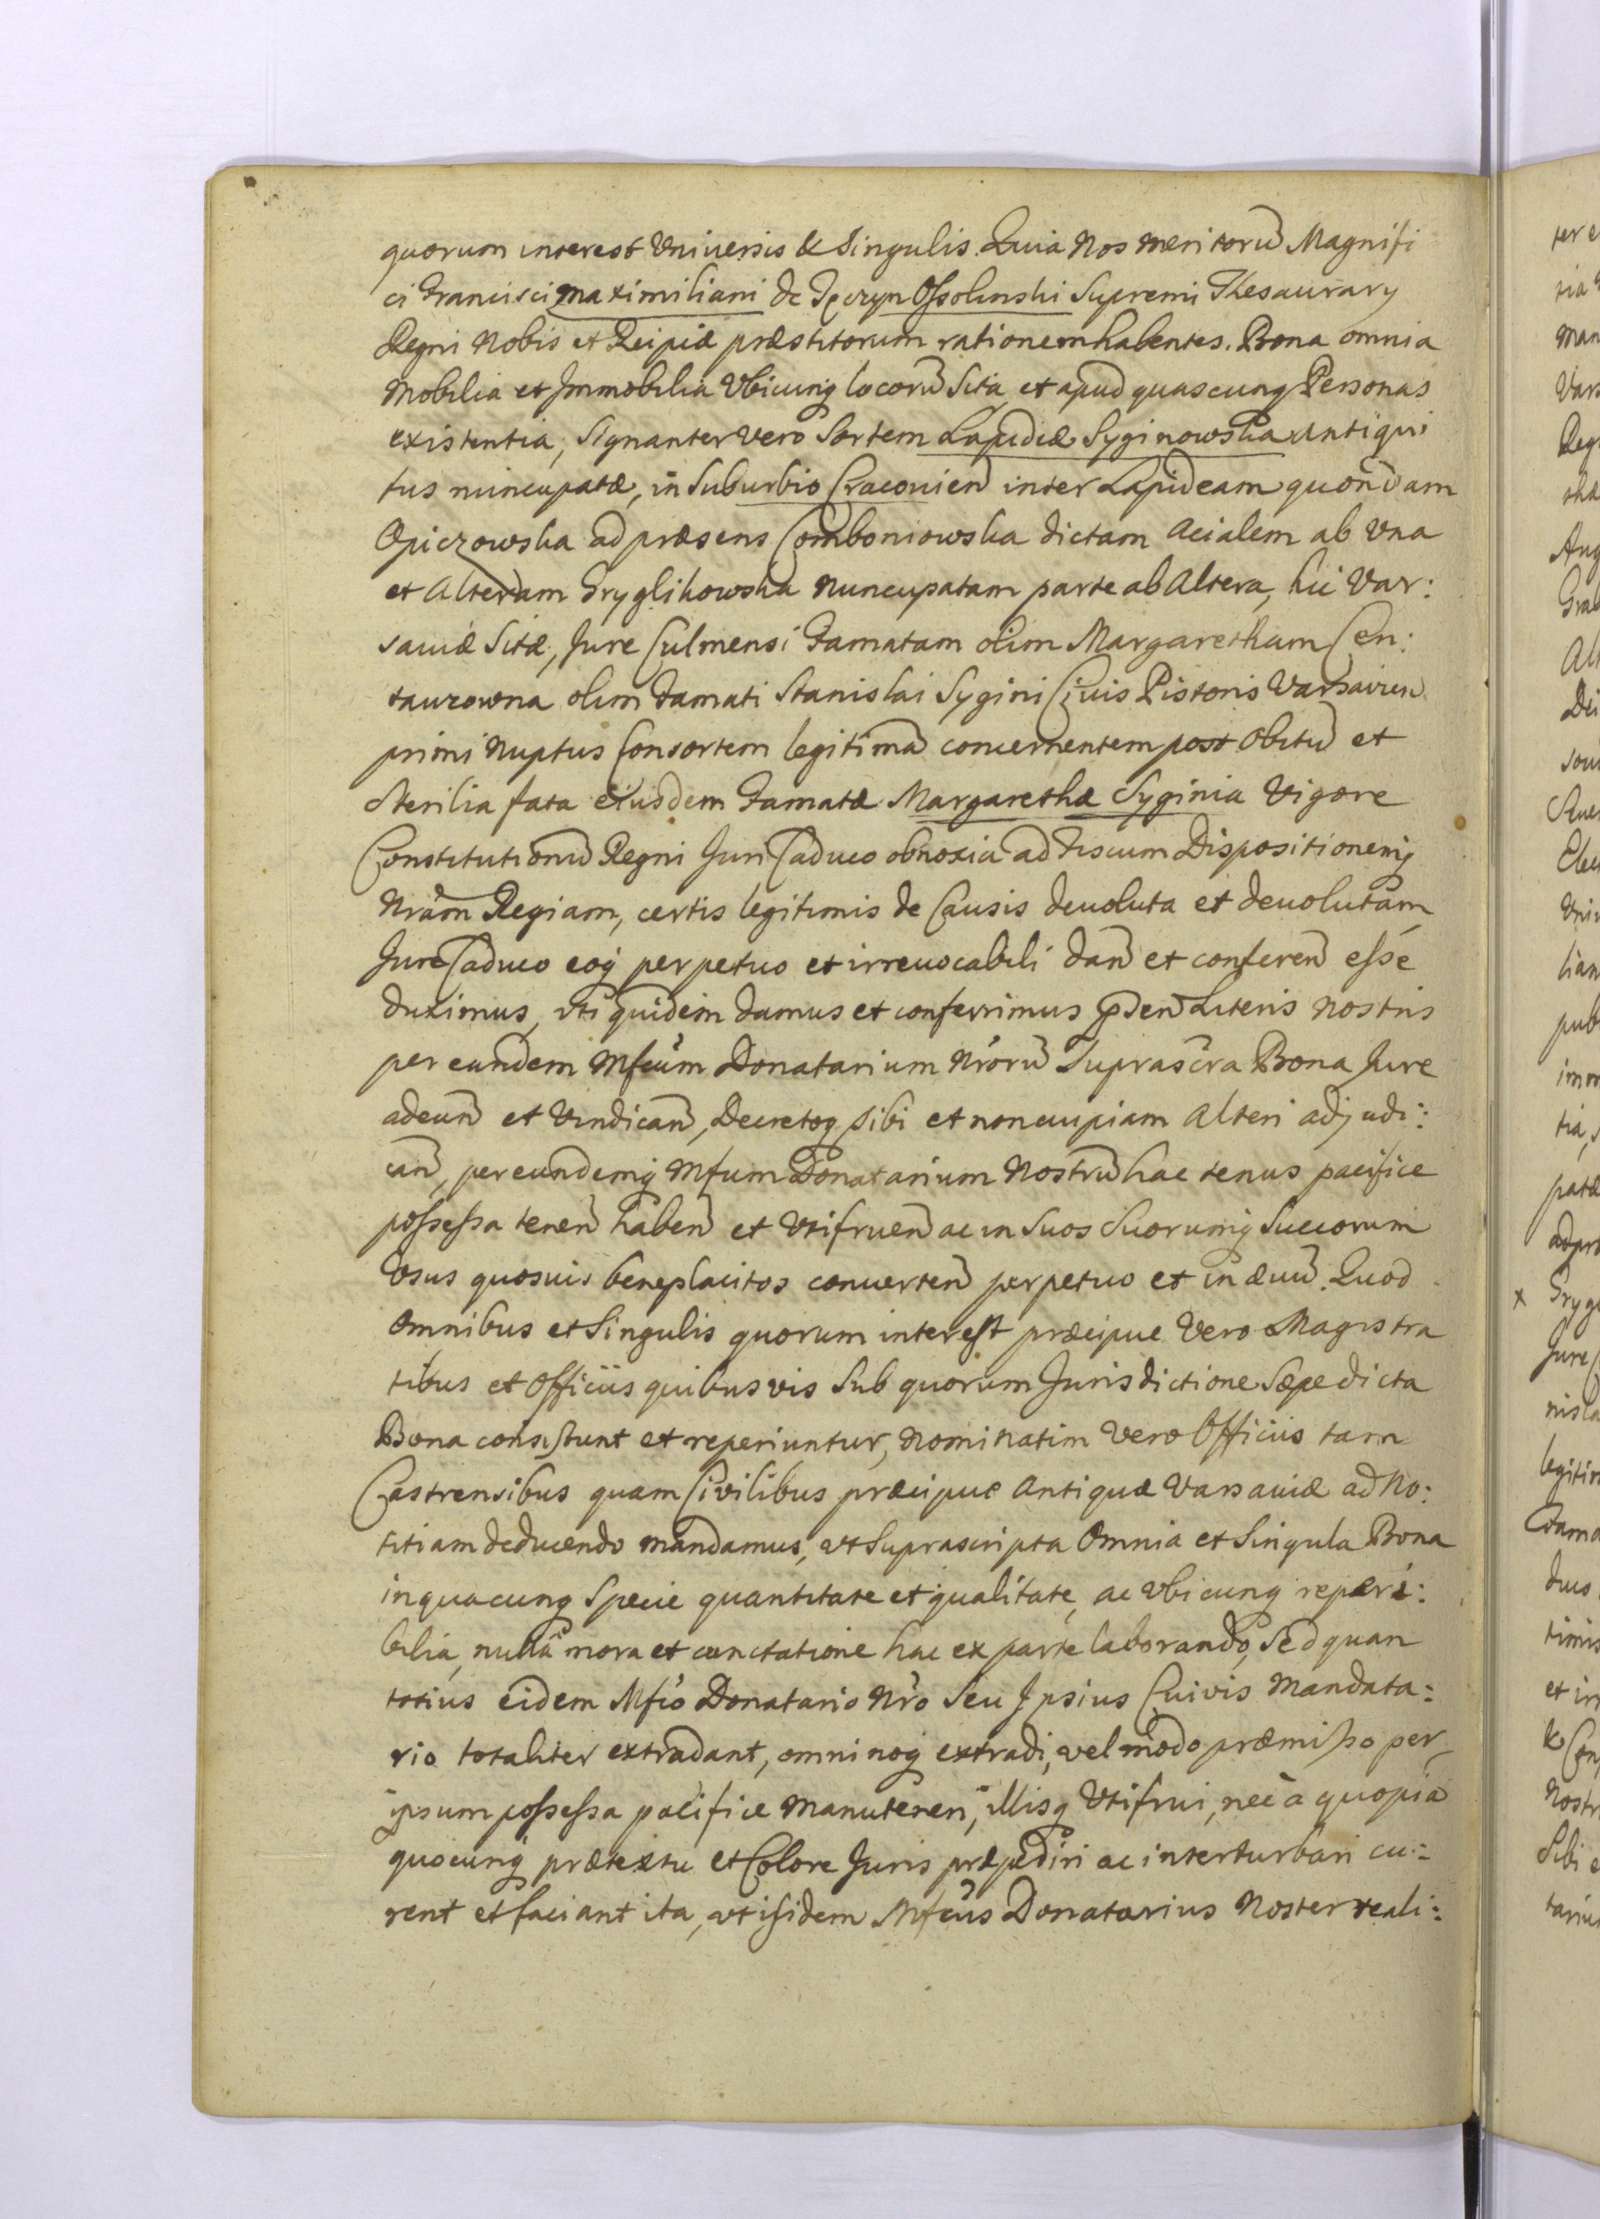 quorum interest Vniuersis & Singulis. Quia Nos meritorū Magnifi
ci Francisci Maximiliani de Tęczyn Ossolinski Supremi Thesaurary
Regni Nobis et Reipiæ præstitorum rationem habentes. Bona omnia
Mobilia et Immobilia Vbicunq locorū Sita, et apud quascunq Personas
existentia, Signanter vero Sortem Lapideæ Syginowska antiqui
tus nuncupatæ, in Suburbio Cracouien inter Lapideam quondam
Opiczowska ad præsens Comboniowska dictam Acialem ab Vna
et Alteram Gryglikowska Nuncupatam parte ab Altera, hic Var:
sauiæ Sitæ, Jure Culmensi Famatam olim Margaretham Cen:
taurowna olim Famati Stanislai Sygini Ciuis Pistoris Varsauien
primi Nuptus Consortem legitimā concernentem post obitū et
Sterilia fata eiusdem Famatæ Margarethæ Syginia Vigore
Constitutionū Regni Juri Caduco obnoxia ad Fiscum Dispositionemq
Nrām Regiam, certis legitimis de Causis deuoluta et deuolutam
Jure Caduco eoq perpetuo et irreuocabili dan et conferen esse
duximus, vti quidem damus et conferrimus pden Literis Nostris
per eundem Mfcum Donatarium Nrorū Suprascra Bona Jure
adeun et Vindican, Decretoq sibi et non cuipiam Alteri adjudi:
can, per eundemq Mfum Donatarium Nostrū hac tenus pacifice
possessa tenen haben et Vtifruen ac in Suos Suorumq Succorum
Vsus quosuis beneplacitos conuerten perpetuo et in æuū. Quod
Omnibus et Singulis quorum interest præcipue Vero Magistra
tibus et Officiis quibusvis Sub quorum Jurisdictione Sæpe dicta
Bona consistunt et reperiuntur, Nominatim Vero Officiis tam
Castrensibus quam Civilibus præcipue Antiquæ Varsauiæ ad No:
titiam deducendo mandamus, vt Suprascripta Omnia et Singula Bona
in quacunq Specie quantitate et qualitate, ac Vbicunq reperi:
bilia, nullā mora et cunctatione hac ex parte laborando, Sed quan
totius eidem Mfco Donatario Nro Seu Ipsius Cuivis Mandata:
rio totaliter extradant, omninoq extradi, vel modo præmisso per
ipsum possessa pacifice manuteneri, illisq Vtifrui, nec à quopiā
quocunq prætextu et Colore Juris præpediri ac interturbari cu:
rent et faciant ita, vt isidem Mfcus Donatarius Noster reali: